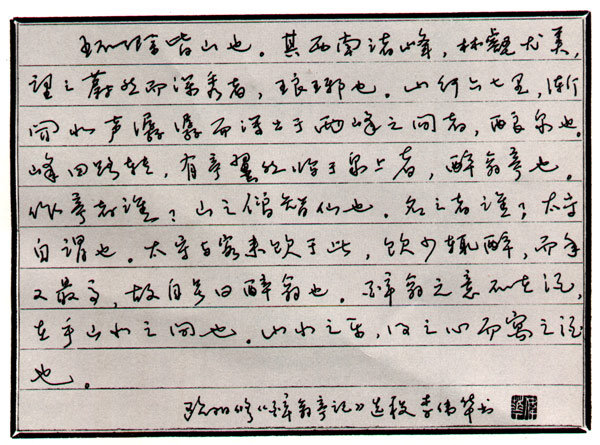 环滁皆山也。其西南诸峰，林壑尤美，
望之蔚然而深秀者，琅琊也。山行六七里，渐
闻水声潺潺而泻出于两峰之间者，酿泉也。
峰回路转，有亭翼然临于泉上者，醉翁亭也。
作亭者谁？山之僧智仙也。名之者谁？太守
自谓也。太守与客来饮于此，饮少辄醉，而年
又最高，故自号曰醉翁也。醉翁之意不在酒，
在乎山水之间也。山水之乐，得之心而寓之酒
也。
欧阳修《醉翁亭记》选段 李伟华书